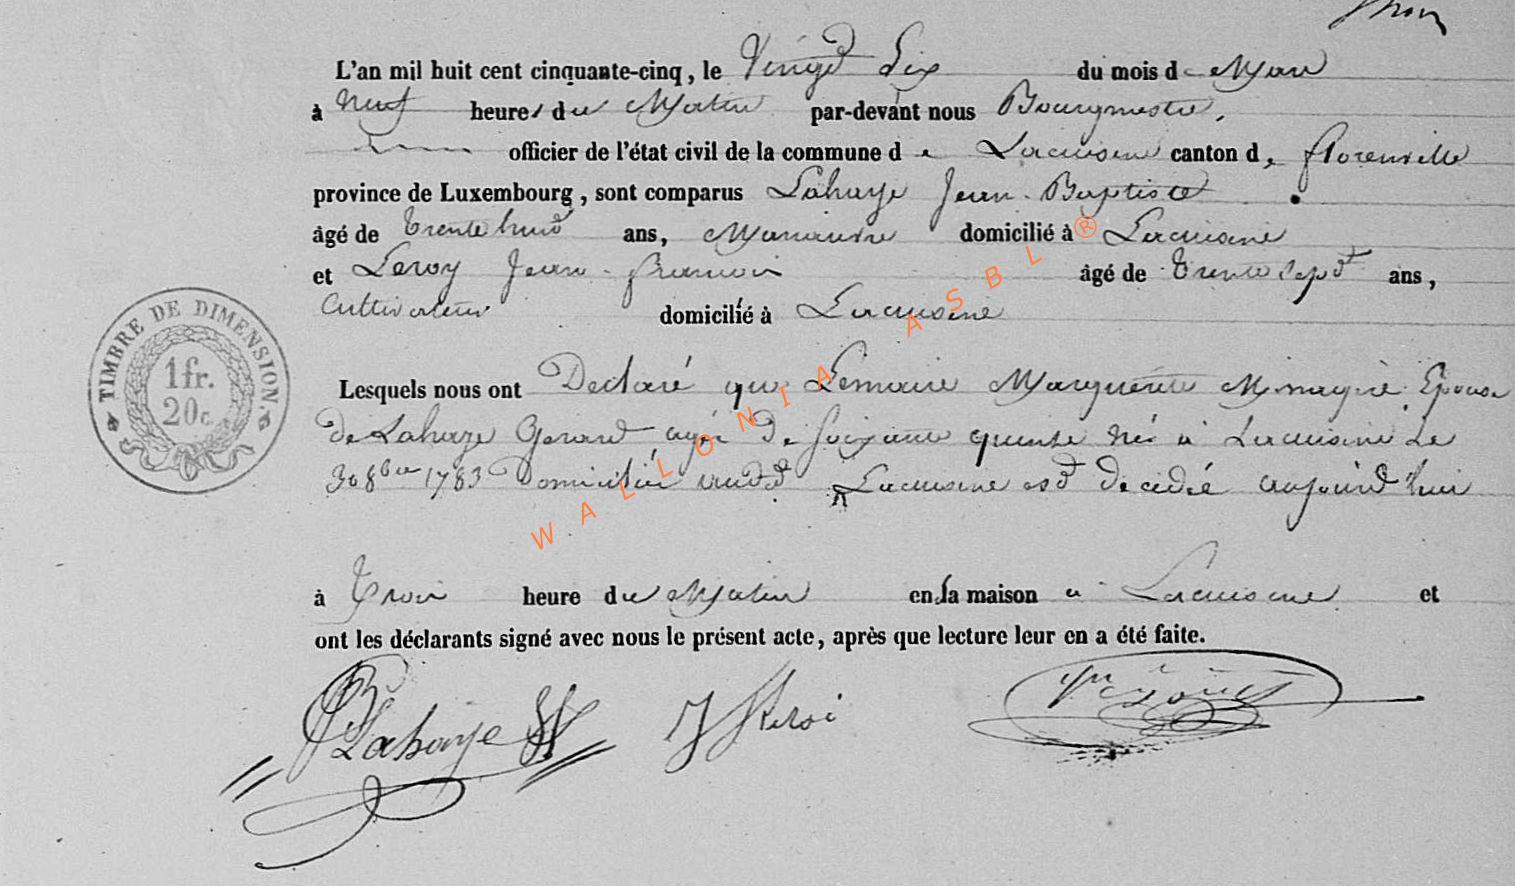 L'an mil huit cent cinquante-cinq, le Vingt Six du mois de Mars
à Neuf heures du Matin par-devant nous Bourgmestre,
officier de l'état civil de la commune de Lacuisine canton de florenville
province de Luxembourg, sont comparus Lahaye Jean-Baptiste
âgé de trente huit ans, Manœuvre domicilié à Lacuisine
et Leroy Jean-francois âgé de trente Sept ans,
Cultivateur domicilié à Lacuisine
TIMBRE DE DIMENSION.
1 fr.
20 c.
Lesquels nous ont Declaré que Lemaire Marguerite Ménagère Epouse
de Lahaye Gerard agé de soixante quinze né à Lacuisine le
30 8bre 1783 Domicilié audit Lacuisine est décédé aujourd'hui
à trois heure du Matin en la maison a Lacuisine et
ont les déclarants signé avec nous le présent acte, après que lecture leur en a été faite.
JB Lahaye
WALLONIA ASBL®